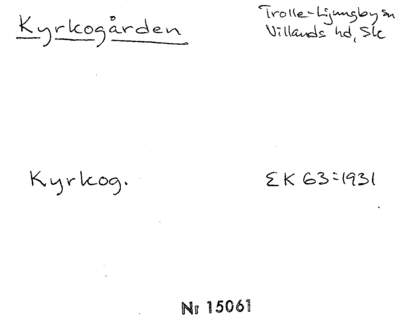 Kyrkogården
Trolle-Ljungby sn
Villands hd, Sk
Kyrkog.
EK 63:1931
Nr 15061